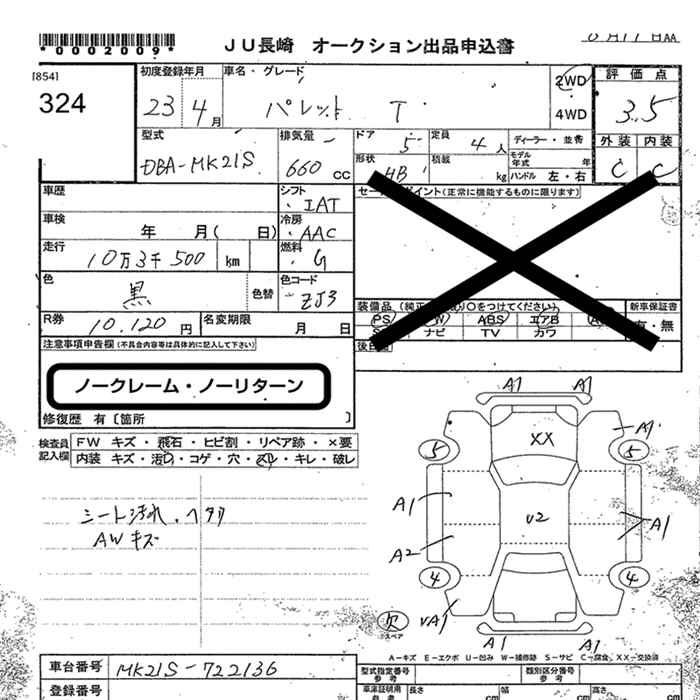 *0002009*
JU長崎 オークション出品申込書
[854]
324
初度登録年月 車名・グレード 2WD 4WD 評価点
23 4月 パレット T 3.5
型式 排気量 ドア 定員 ディーラー・並行 外装 内装
DBA-MK21S 660cc 5 4人 C C
形状 積載 kg モデル年式 年 ハンドル 左・右
HB
車歴 シフト IAT
車検 年 月( 日) 冷房 AAC
走行 10万3千500 km 燃料 G
色 黒 色替 色コード ZJ3
R券 10,120円 名変期限 月 日
セールスポイント(正常に機能するものに限ります)
新車保証書
PS PW ABS エアB
ナビ TV カワ
有・無
後日
注意事項申告欄(不具合内容等は具体的に記入して下さい)
ノークレーム・ノーリターン
修復歴 有〔箇所 〕
検査員記入欄
FW キズ・飛石・ヒビ割・リペア跡・×要
内装 キズ・汚レ・コゲ・穴・スレ・キレ・破レ
シート汚れ、ヘタリ
AWキズ
A1 A1
XX
A1
5 5
A1 U2 A1
A2
4 4
UA1
欠
スペア
A1 A1
A-キズ E-エクボ U-凹み W-補修跡 S-サビ C-腐食 XX-交換済
車台番号 MK21S-722136
登録番号
型式指定番号 参考 類別区分番号 参考
車庫証明用 参考 長さ cm 幅 cm 高さ cm